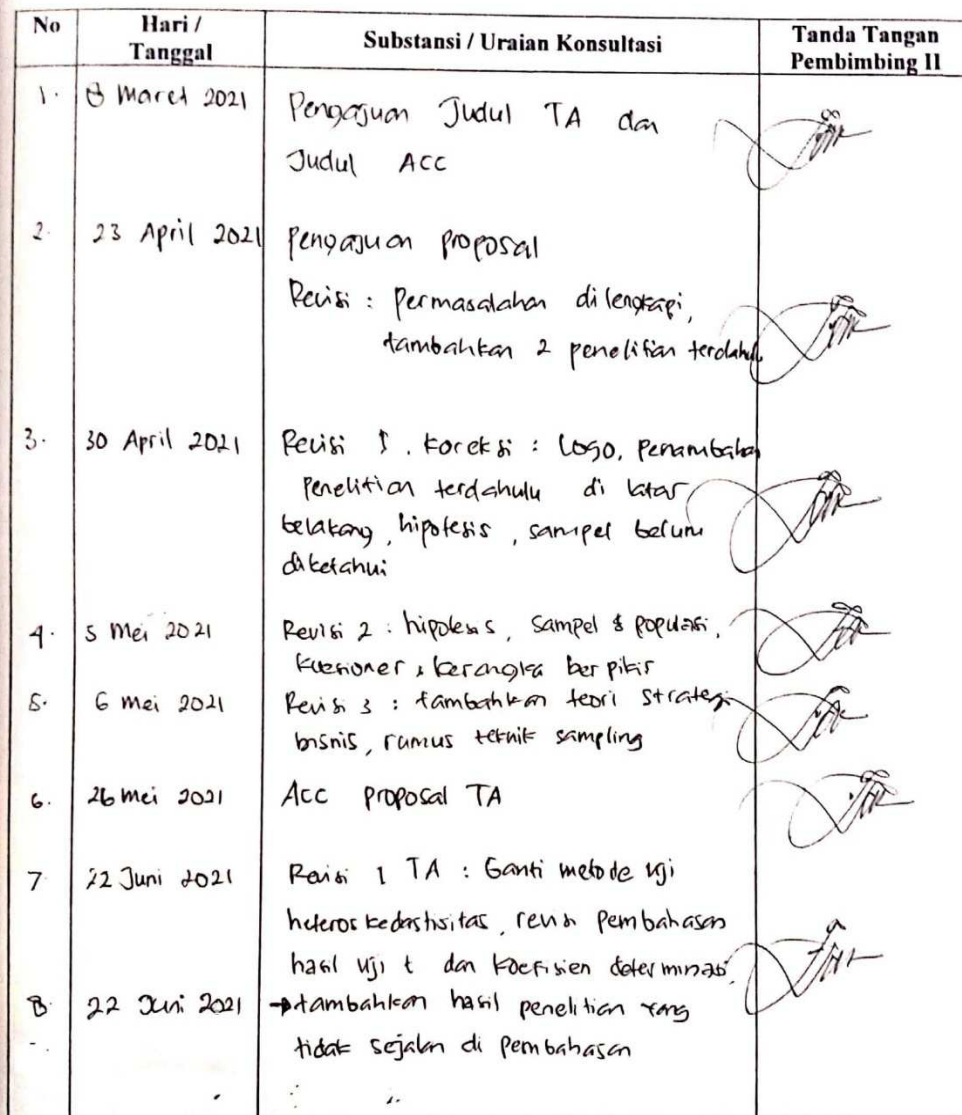 No Hari / Tanggal Substansi / Uraian Konsultasi Tanda Tangan Pembimbing II
1. 8 Maret 2021 Pengajuan Judul TA dan
Judul ACC
2. 23 April 2021 Pengajuan proposal
Revisi : Permasalahan dilengkapi,
tambahkan 2 penelitian terdahulu
3. 30 April 2021 Revisi 1. Koreksi : Logo, Penambahan
Penelitian terdahulu di latar
belakang, hipotesis, sampel belum
diketahui
4. 5 Mei 2021 Revisi 2 : hipotesis, Sampel & populasi,
kuesioner, kerangka berpikir
5. 6 Mei 2021 Revisi 3 : tambahkan teori strategi
bisnis, rumus teknik sampling
6. 26 Mei 2021 Acc proposal TA
7. 22 Juni 2021 Revisi 1 TA : Ganti metode uji
heteroskedastisitas, revisi Pembahasan
hasil uji t dan koefisien determinasi,
8. 22 Juni 2021 → tambahkan hasil penelitian yang
tidak sejalan di Pembahasan